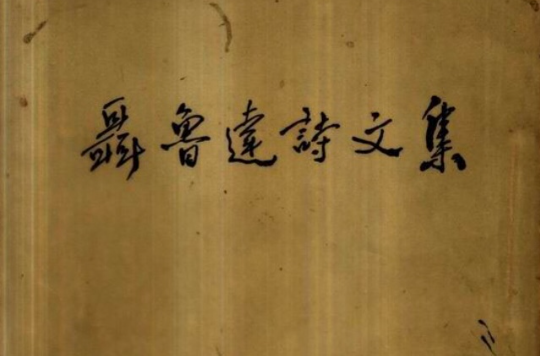 聶魯達詩文集